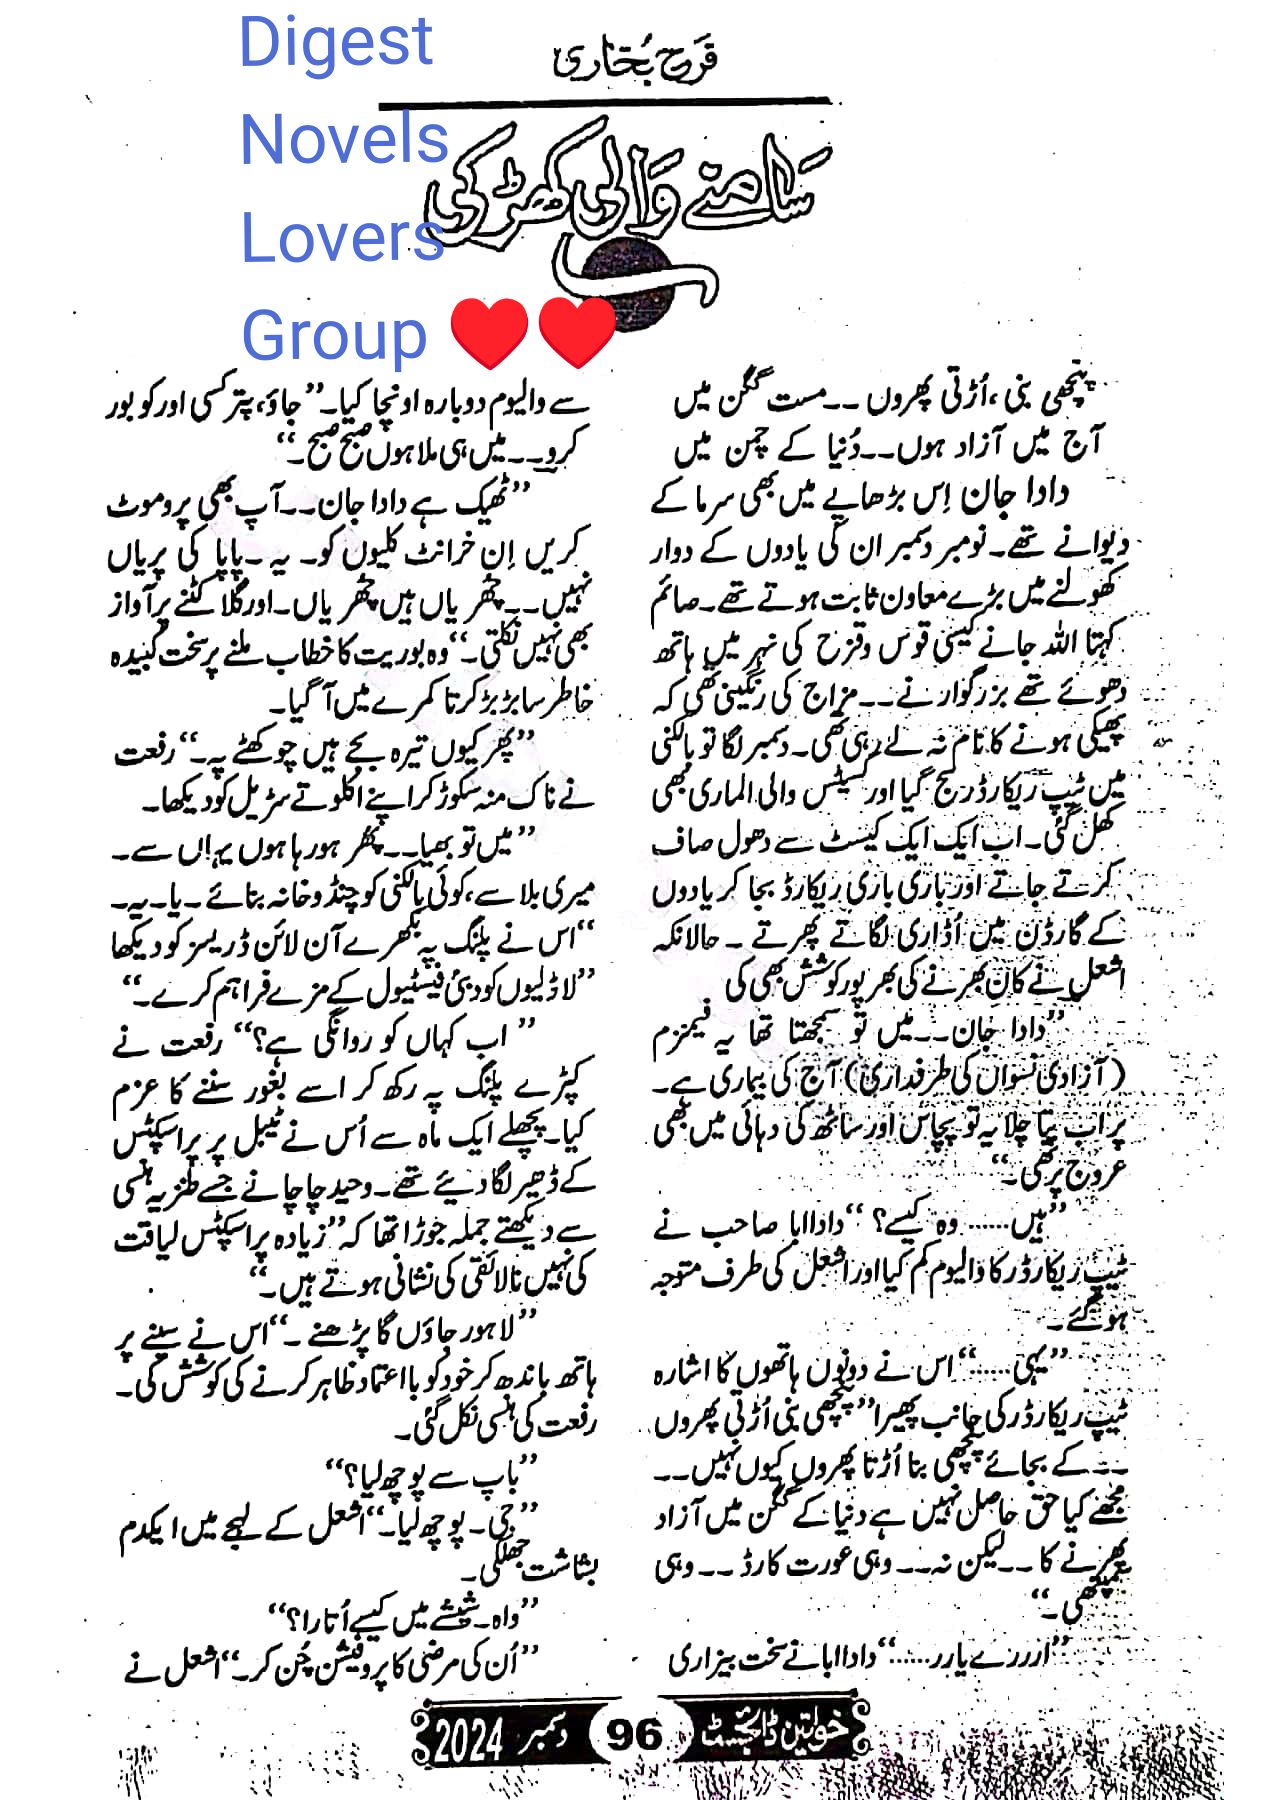 Digest
Novels
Lovers
Group
فرح بُخاری
سامنے والی کھڑکی
پنچھی بنی، اُڑتی پھروں ۔۔مست گگن میں
آج میں آزاد ہوں۔۔دُنیا کے چمن میں
دادا جان اِس بڑھاپے میں بھی سرما کے
دیوانے تھے۔ نومبر دسمبر ان کی یادوں کے دوار
کھولنے میں بڑے معاون ثابت ہوتے تھے۔ صائم
کہتا اللہ جانے کیسی قوس وقزح کی نہر میں ہاتھ
دھوئے تھے بزرگوار نے۔۔ مزاج کی رنگینی تھی کہ
پھیکی ہونے کا نام نہ لے رہی تھی۔ دسمبر لگا تو بالکنی
میں ٹیپ ریکارڈر سج گیا اور کیسٹس والی الماری بھی
کھل گئی۔ اب ایک ایک کیسٹ سے دھول صاف
کرتے جاتے اور باری باری ریکارڈ بجا کر یادوں
کے گارڈن میں اُڈاری لگاتے پھرتے ۔ حالانکہ
اشعل نے کان بھرنے کی بھرپور کوشش بھی کی
”دادا جان۔۔میں تو سمجھتا تھا یہ فیمنزم
(آزادی نسواں کی طرفداری) آج کی بیماری ہے۔
پر اب پتا چلا یہ تو پچاس اور ساٹھ کی دہائی میں بھی
عروج پر تھی۔“
”ہیں...... وہ کیسے؟“ دادا ابا صاحب نے
ٹیپ ریکارڈر کا والیوم کم کیا اور اشعل کی طرف متوجہ
ہو گئے۔
”یہی......“ اس نے دونوں ہاتھوں کا اشارہ
ٹیپ ریکارڈر کی جانب پھیرا ”پنچھی بنی اُڑتی پھروں
۔۔کے بجائے پنچھی بنا اُڑتا پھروں کیوں نہیں۔۔
مجھے کیا حق حاصل نہیں ہے دنیا کے گگن میں آزاد
پھرنے کا ۔۔لیکن نہ۔۔ وہی عورت کارڈ ۔۔ وہی
”ارررے یارر......“ دادا ابا نے سخت بیزاری
سے والیوم دوبارہ اونچا کیا۔ ”جاؤ، پتر کسی اور کو بور
کرو۔۔ میں ہی ملا ہوں صبح صبح۔“
”ٹھیک ہے دادا جان۔۔آپ بھی پروموٹ
کریں اِن خرانٹ کلیوں کو۔ یہ۔ پاپا کی پریاں
نہیں۔۔ چھریاں ہیں چھریاں۔ اور گلا کٹنے پر آواز
بھی نہیں نکلتی۔“ وہ بوریت کا خطاب ملنے پر سخت کبیدہ
خاطر سا بڑبڑ کرتا کمرے میں آ گیا۔
”پھر کیوں تیرہ بجے ہیں چوکھٹے پہ۔“ رفعت
نے ناک منہ سکوڑ کر اپنے اکلوتے سڑیل کو دیکھا۔
”میں تو بھیا۔۔ پھُر ہو رہا ہوں یہاں سے۔
میری بلا سے، کوئی بالکنی کو چنڈو خانہ بنائے ۔یا۔یہ۔
“ اس نے پلنگ پہ بکھرے آن لائن ڈریسز کو دیکھا
”لاڈلیوں کو دبئی فیسٹیول کے مزے فراہم کرے۔“
”اب کہاں کو روانگی ہے؟“ رفعت نے
کپڑے پلنگ پہ رکھ کر اسے بغور سننے کا عزم
کیا۔ پچھلے ایک ماہ سے اُس نے ٹیبل پر پراسپکٹس
کے ڈھیر لگا دیئے تھے۔ وحید چاچا نے جسے طنزیہ ہنسی
سے دیکھتے جملہ جوڑا تھا کہ ”زیادہ پراسپکٹس لیاقت
کی نہیں نالائقی کی نشانی ہوتے ہیں۔“
”لاہور جاؤں گا پڑھنے ۔“ اس نے سینے پر
ہاتھ باندھ کر خود کو بااعتماد ظاہر کرنے کی کوشش کی۔
رفعت کی ہنسی نکل گئی۔
”باپ سے پوچھ لیا؟“
”جی۔ پوچھ لیا۔“ اشعل کے لہجے میں ایکدم
بشاشت جھلکی۔
”واہ۔ شیشے میں کیسے اُتارا؟“
”اُن کی مرضی کا پروفیشن چُن کر۔“ اشعل نے
خواتین ڈائجسٹ 96 دسمبر 2024